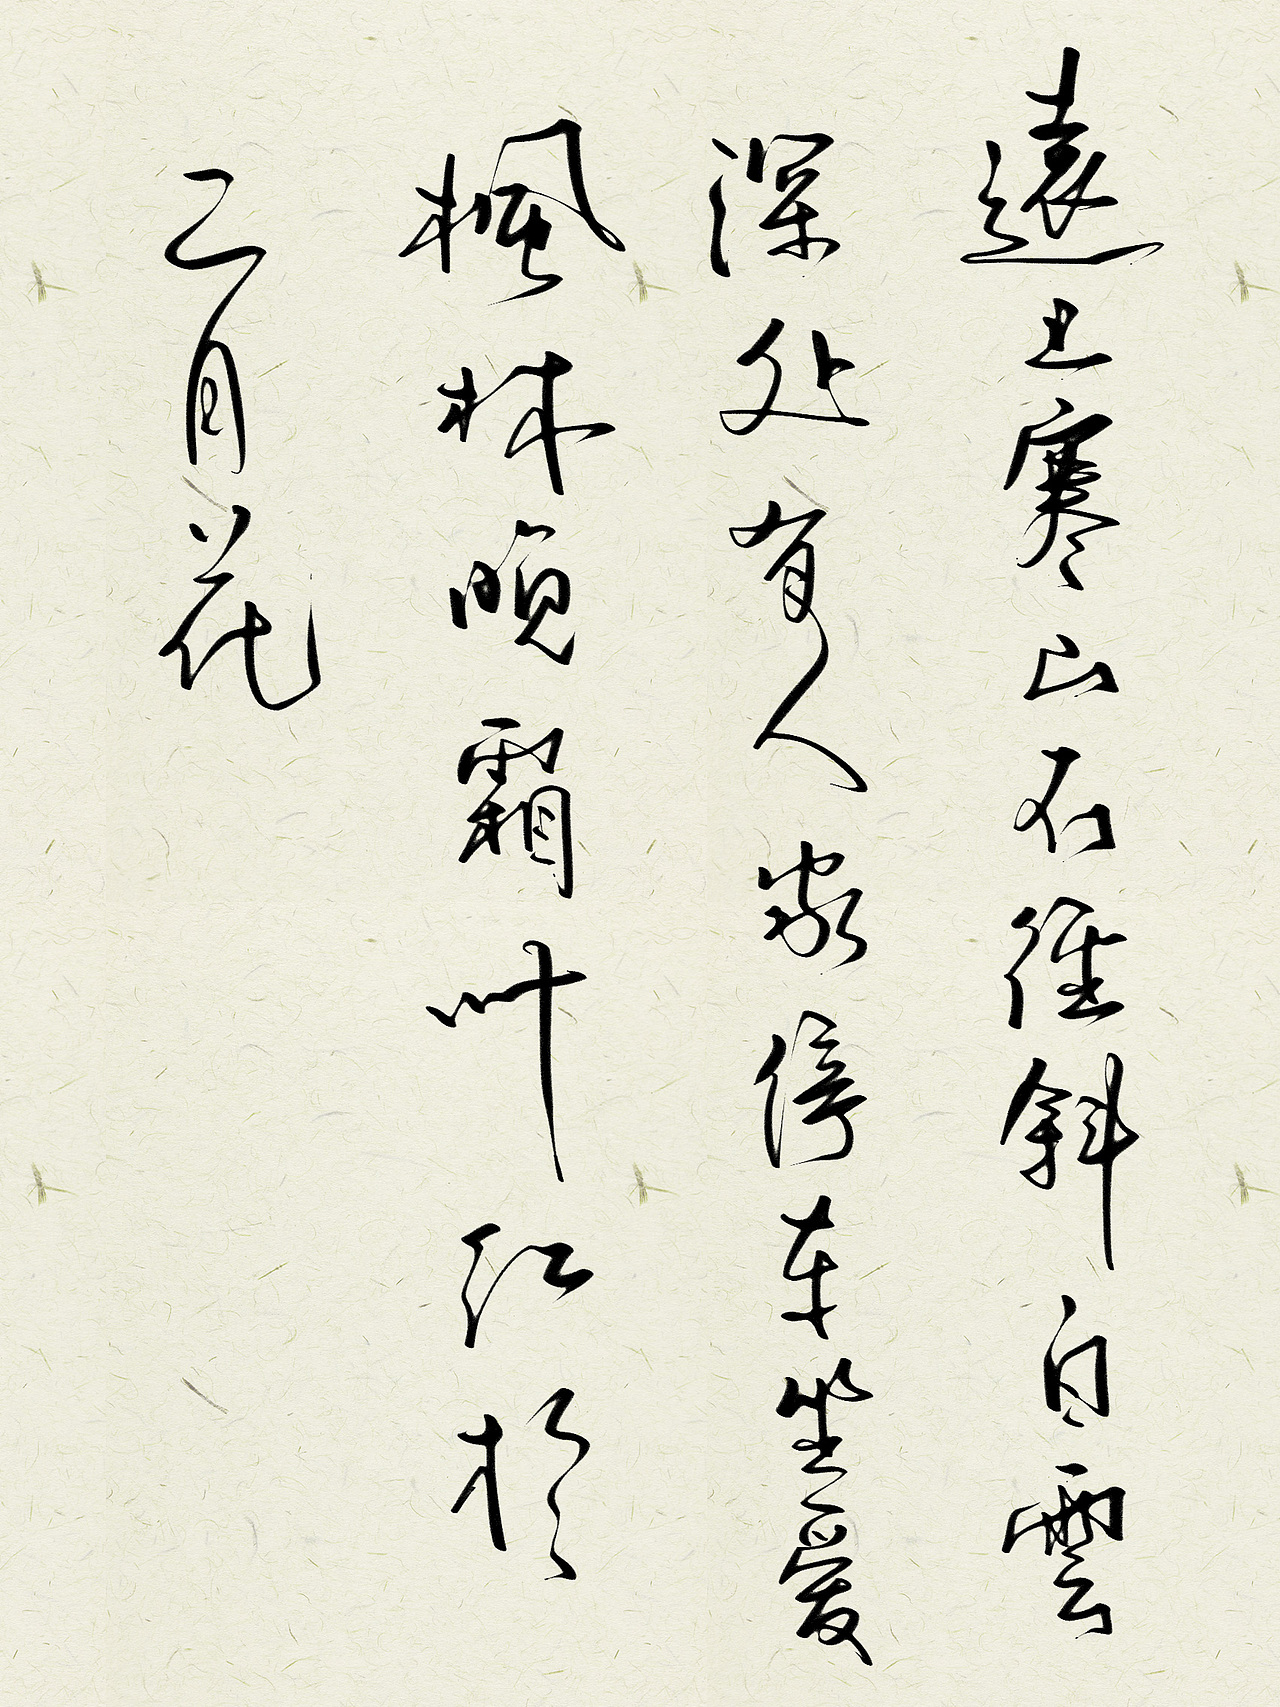 遠上寒山石径斜白雲
深处有人家停车坐爱
楓林晚霜叶红於
二月花